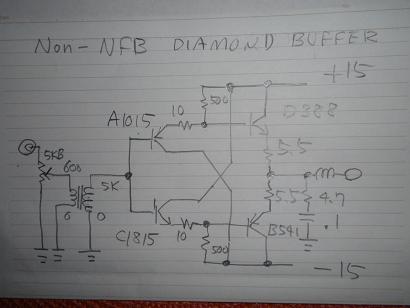 NON-NFB DIAMOND BUFFER
+15
A1015
10
500
D388
5KB
600
5K
5.5
5.5
4.7
.1
6
0
C1815
10
500
B541
-15